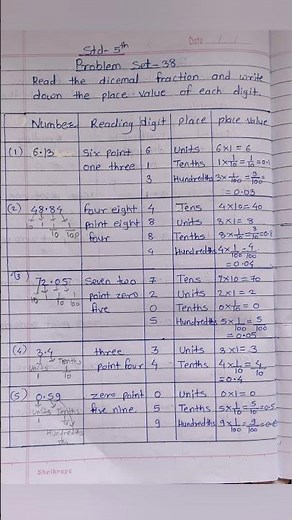 Date
Std- 5th
Problem Set-38
Read the dicemal fraction and write
down the place value of each digit.
Number Reading digit place place value
(1) 6.13 six point 6 Units 6×1 = 6
one three 1 Tenths 1×1/10 = 1/10 = 0.1
3 Hundredths 3×1/100 = 3/100
= 0.03
(2) 48.84 four eight 4 Tens 4×10 = 40
point eight 8 Units 8×1 = 8
four 8 Tenths
4 Hundredths 4×1/100 = 4/100
= 0.04
(3) 72.05 seven two 7 Tens 7×10 = 70
point zero 2 Units 2×1 = 2
five 0 Tenths 0×1/10 = 0
5 Hundredths 5×1/100 = 5/100
= 0.05
(4) 3.4 three 3 Units 3×1 = 3
Units Tenths point four 4 Tenths 4×1/10 = 4/10
= 0.4
(5) 0.59 zero point 0 Units 0×1 = 0
Units Tenths five nine. 5 Tenths 5×1/10 = 5/10 = 0.5
9 Hundredths 9×1/100 = 9/100
Shrikrupa